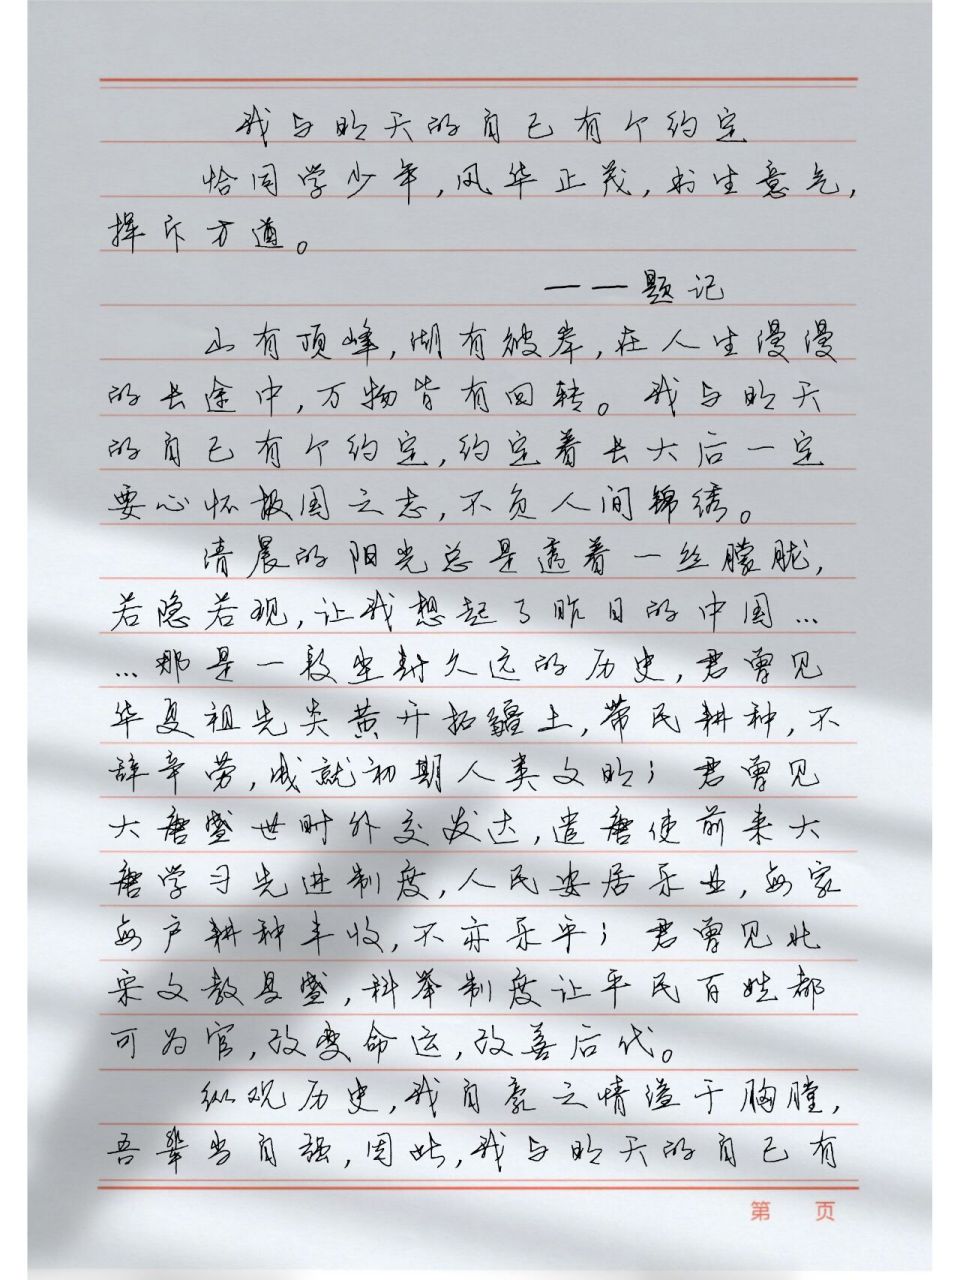 我与昨天的自己有个约定
恰同学少年,风华正茂,书生意气,
挥斥方遒。
——题记
山有顶峰,湖有彼岸,在人生漫漫
的长途中,万物皆有回转。我与昨天
的自己有个约定,约定着长大后一定
要心怀报国之志,不负人间锦绣。
清晨的阳光总是透着一丝朦胧,
若隐若现,让我想起了昨日的中国…
…那是一段尘封久远的历史,君曾见
华夏祖先炎黄开拓疆土,带民耕种,不
辞辛劳,成就初期人类文明;君曾见
大唐盛世时外交发达,遣唐使前来大
唐学习先进制度,人民安居乐业,每家
每户耕种丰收,不亦乐乎;君曾见北
宋文教复盛,科举制度让平民百姓都
可为官,改变命运,改善后代。
纵观历史,我自豪之情溢于胸膛,
吾辈当自强,因此,我与昨天的自己有
第 页